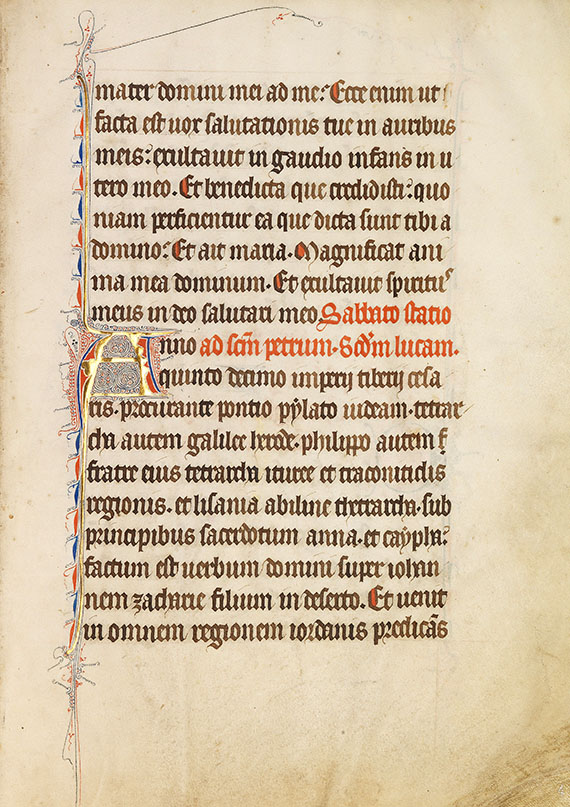 mater domini mei ad me: Ecce enim ut
facta est uox salutationis tue in auribus
meis: exultauit in gaudio infans in u
tero meo. Et benedicta que credidisti: quo
niam perficientur ea que dicta sunt tibi a
domino: Et ait maria. Magnificat ani
ma mea dominum. Et exultauit spiritus
meus in deo salutari meo. Sabbato statio
Anno ad scm̄ petrum. Scdm̄ lucam.
quinto decimo imperij tiberij cesa
ris. procurante pontio pylato iudeam. tetrar
cha autem galilee herode. philippo autem f
fratre eius tetrarcha ituree et traconitidis
regionis. et lisania abiline thetrarcha. sub
principibus sacerdotum anna. et caypha:
factum est uerbum domini super iohan
nem zacharie filium in deserto. Et uenit
in omnem regionem iordanis predicās